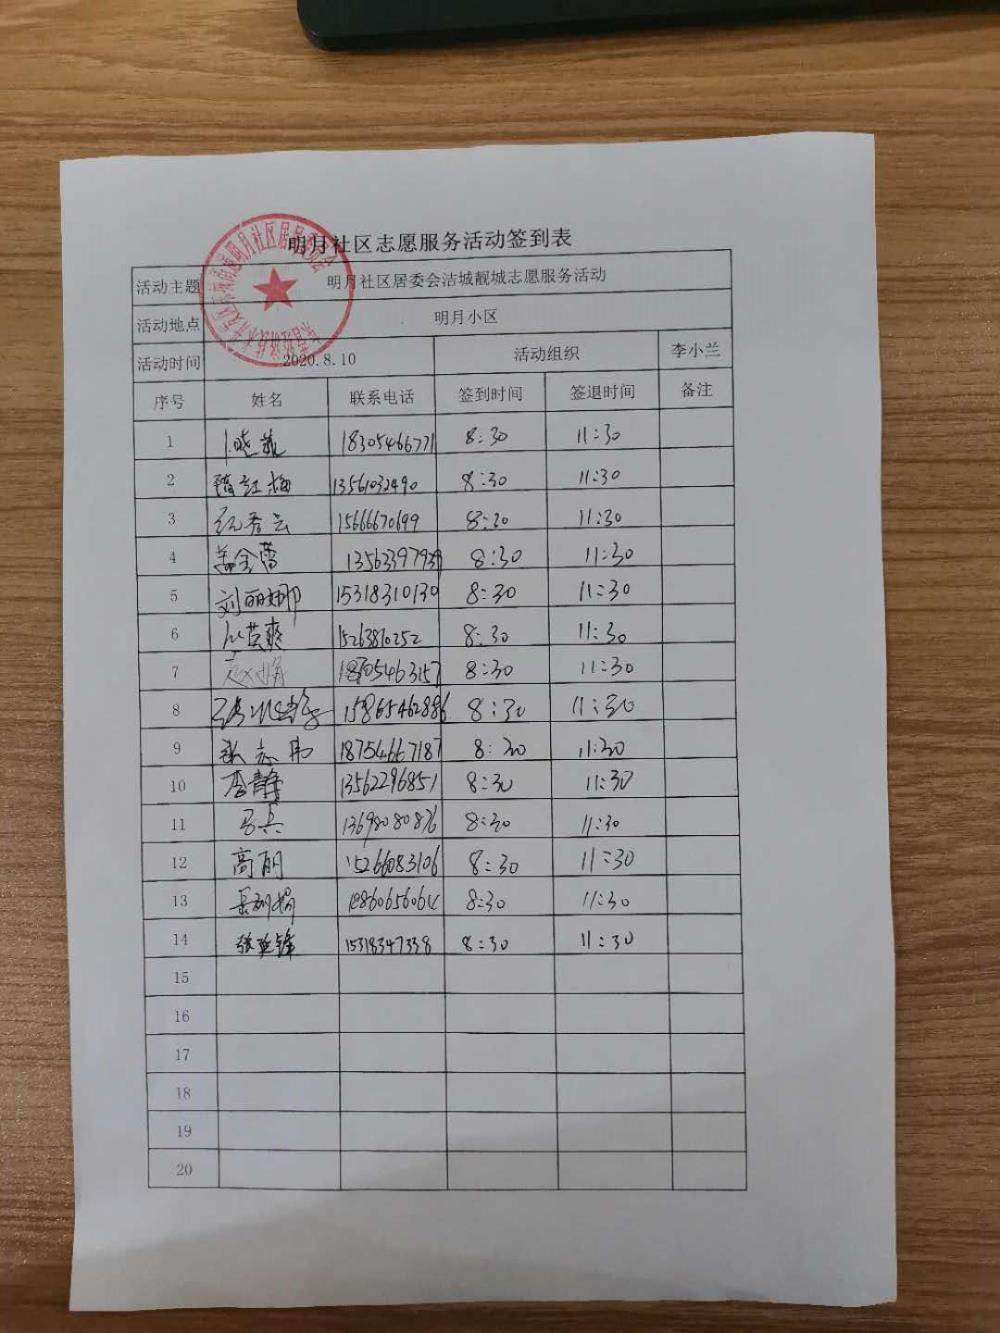 明月社区志愿服务活动签到表
活动主题 明月社区居委会洁城靓城志愿服务活动
活动地点 明月小区
活动时间 2020.8.10 活动组织 李小兰
序号 姓名 联系电话 签到时间 签退时间 备注
1 18305466771 8:30 11:30
2 红梅 13561032490 8:30 11:30
3 15666670699 8:30 11:30
4 8:30 11:30
5 刘丽娜 15318310130 8:30 11:30
6 15263810252 8:30 11:30
7 赵娟 8:30 11:30
8 15865462886 8:30 11:30
9 张志伟 18754667187 8:30 11:30
10 李静 13562296851 8:30 11:30
11 马兵 13698080876 8:30 11:30
12 高丽 15266083106 8:30 11:30
13 8:30 11:30
14 张延锋 15318347338 8:30 11:30
15
16
17
18
19
20